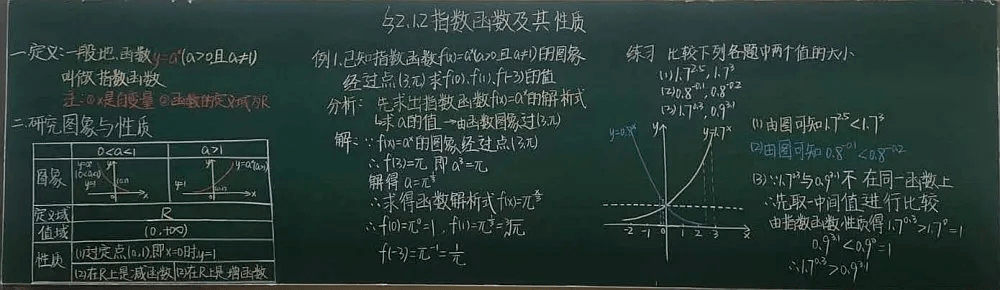 §2.1.2 指数函数及其性质
一.定义:一般地.函数y=aˣ(a>0且a≠1)
叫做指数函数
注:①x是自变量 ②函数的定义域为R
二.研究图象与性质
0<a<1 a>1
图象
y=aˣ
(0<a<1)
y=1
(0,1)
x
y
y=aˣ(a>1)
y=1
(0,1)
x
定义域 R
值域 (0,+∞)
性质 (1)过定点(0,1),即x=0时,y=1
(2)在R上是减函数 (2)在R上是增函数
例1.已知指数函数f(x)=aˣ(a>0且a≠1)的图象
经过点(3,π)求f(0).f(1).f(-3)的值
分析: 先求出指数函数f(x)=aˣ的解析式
↳求a的值→由函数图象过(3,π)
解:∵y=aˣ的图象经过点(3,π)
∴f(3)=π 即 a³=π
解得 a=π^(1/3)
∴求得函数解析式f(x)=π^(x/3)
∴f(0)=π⁰=1, f(1)=π^(1/3)=³√π
f(-3)=π⁻¹=1/π
练习 比较下列各题中两个值的大小
(1)1.7^2.5, 1.7³
(2)0.8^-0.1, 0.8^-0.2
(3)1.7^0.3, 0.9^3.1
y=0.8ˣ y y=1.7ˣ
-2 -1 0 1 2 3 x
(1)由图可知1.7^2.5<1.7³
(2)由图可知0.8^-0.1<0.8^-0.2
(3)∵1.7^0.3与0.9^3.1不在同一函数上
∴先取一中间值进行比较
由指数函数性质得1.7^0.3>1.7⁰=1
0.9^3.1<0.9⁰=1
∴1.7^0.3>0.9^3.1